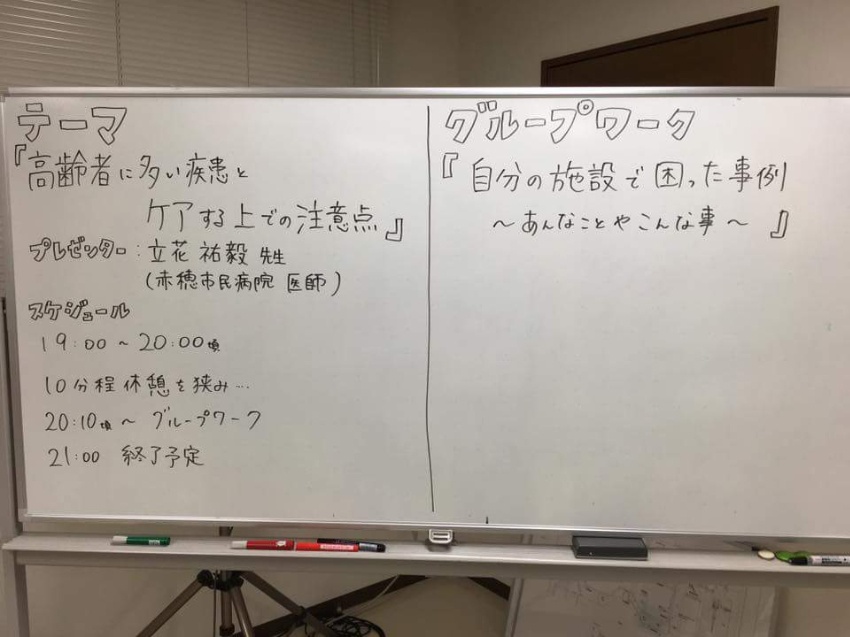 テーマ
『高齢者に多い疾患と
ケアする上での注意点』
プレゼンター：立花 祐毅 先生
(赤穂市民病院 医師)
スケジュール
19:00〜20:00頃
10分程休憩を挟み…
20:10頃〜 グループワーク
21:00 終了予定
グループワーク
『自分の施設で困った事例
〜あんなことやこんな事〜』